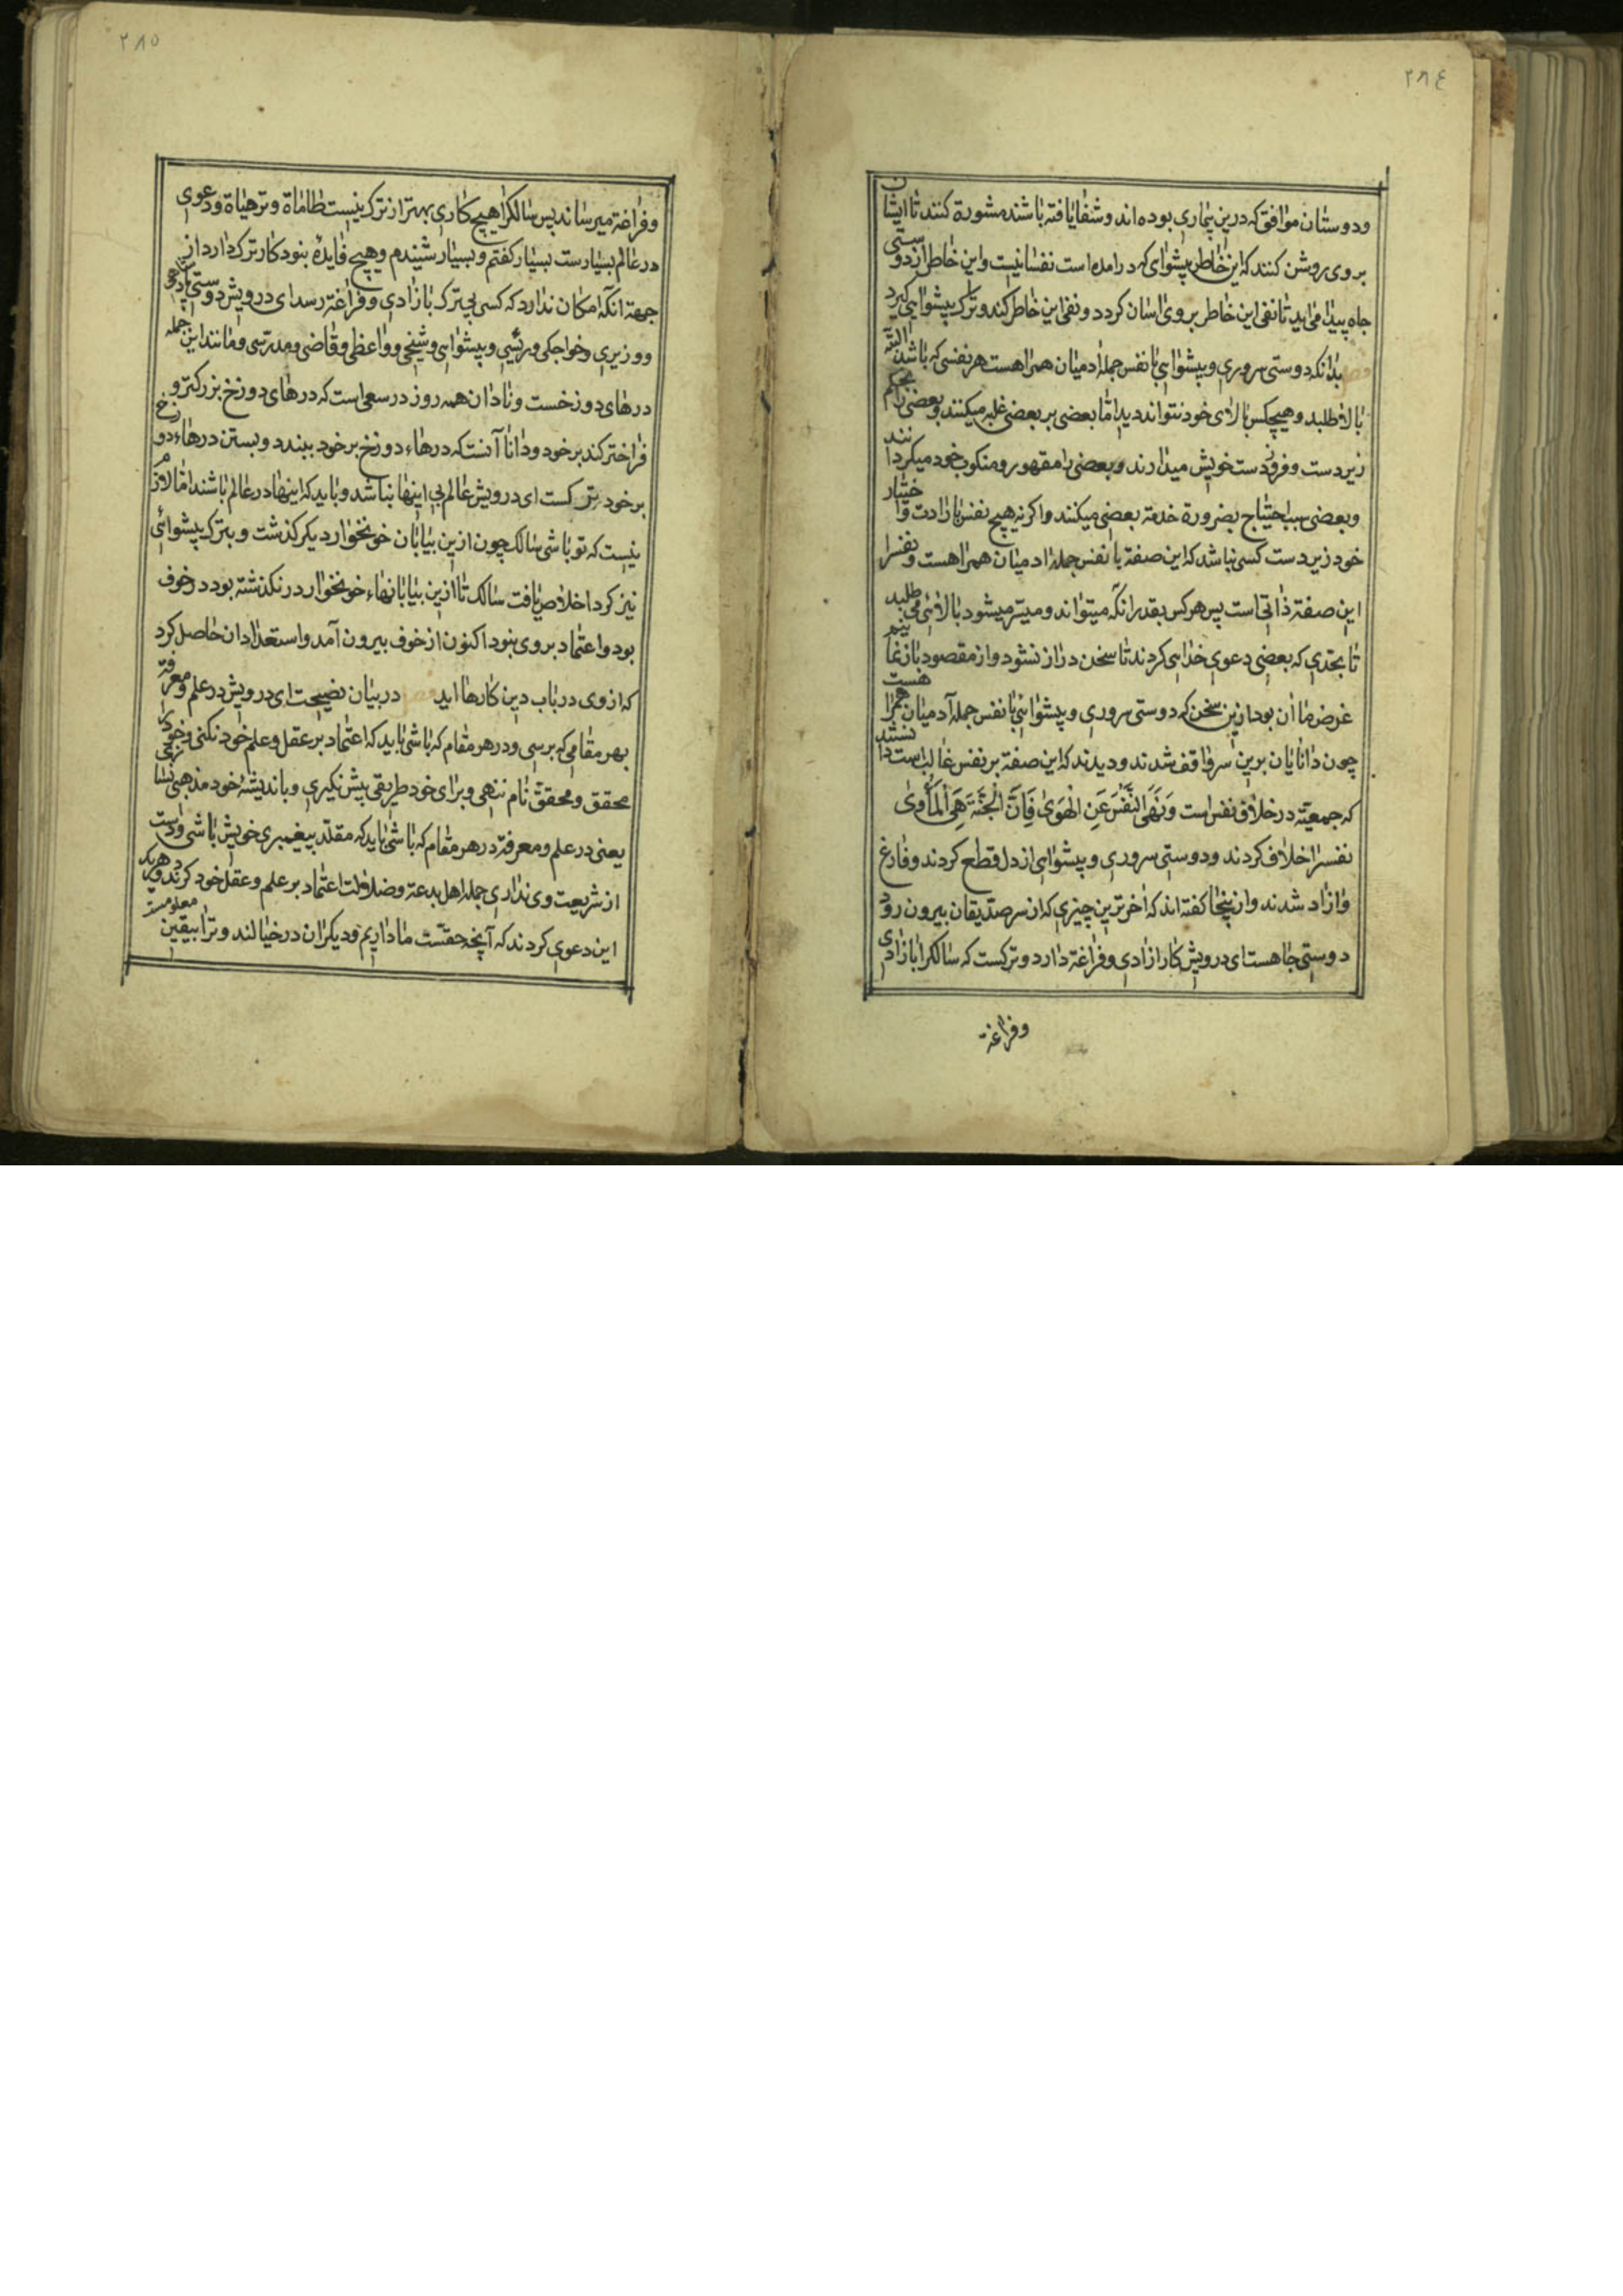 ٢٨٤
ودوستان موافق که درین بیماری بوده اند وشفا یافته باشند مشورة کنند تا ایشان
بروی روشن کنند که این خاطر پیشوای که درامده است نفسانیست واین خاطر از دوستی
جاه پیدا می اید تا نفی این خاطر بروی اسان کردد ونفی این خاطر کند وترک پیشوایی کیرد
بدانکه دوستی سروری وپیشوایی با نفس جمله ادمیان همراهست هر نفسی که باشد البته
بالا طلبد وهیچکس بالای خود نتواند دید اما بعضی بر بعضی غلبه میکنند وبعضی را محکم
زیردست وفرودست خویش میدارند وبعضی را مقهور ومنکوب خود میکردانند
وبعضی بسبب احتیاج بضرورة خدمة بعضی میکنند واکرنه هیچ نفس بارادت واختیار
خود زیردست کسی نباشد که این صفة با نفس جمله ادمیان همراهست ونفس را
این صفة ذاتی است پس هرکس بقدر انکه میتواند ومیسر میشود بالائی می طلبد
تا بحدی که بعضی دعوی خدایی کردند تا سخن دراز نشود واز مقصود باز نمانیم
غرض ما ان بود ازین سخن که دوستی سروری وپیشوایی با نفس جمله آدمیان همراهست
چون دانایان برین سر واقف شدند ودیدند که این صفة بر نفس غالب است دانستند
که جمعیة در خلاف نفس است وَنَهَى النَّفْسَ عَنِ الْهَوَىٰ فَاِنَّ الْجَنَّةَ هِيَ الْمَأْوىٰ
نفس را خلاف کردند ودوستی سروری وپیشوایی از دل قطع کردند وفارغ
وازاد شدند وازینجا کفته اند که آخرترین چیزی که از سر صدیقان بیرون رود
دوستی جاهست ای درویش کار ازادی وفراغة دارد وترکست که سالکرا بازادی
وفراغة
٢٨٥
وفراغة میرساند پس سالکرا هیچ کاری بهتر از ترک نیست طامات وترهاة ودعوی
در عالم بسیارست بسیار کفتم وبسیار شنیدم وهیچ فایدۀ نبود کار ترک دارد از
جهة انکه امکان ندارد که کسی بی ترک بازادی وفراغة رسد ای درویش دوستی پادشاهی
ووزیری وخواجکی ورئیسی وپیشوایی وشیخی وواعظی وقاضی ومدرسی ومانند این جمله
درهای دوزخست ونادان همه روز در سعی است که درهای دوزخ بزرکتر و
فراختر کند بر خود ودانا آنست که درهاء دوزخ بر خود ببندد وبستن درهاء دوزخ
بر خود ترکست ای درویش عالم بی اینها نباشد وباید که اینها در عالم باشند اما لازم
نیست که تو باشی سالک چون ازین بیابان خونخوار دیکر کذشت وبترک پیشوائی
نیز کرد اخلاص یافت سالک تا ازین بیابانهاء خونخوار در نکذشته بود در خوف
بود واعتماد بر وی نبود اکنون از خوف بیرون آمد واستعداد ان حاصل کرد
که از وی در باب دین کارها اید در بیان نصیحت ای درویش در علم ومعرفة
بهر مقامی که برسی ودر هر مقام که باشی باید که اعتماد بر عقل وعلم خود نکنی وخود را
محقق ومحقق نام ننهی وبرای خود طریقی پیش نکیری وباندیشۀ خود مذهبی نسازی
یعنی در علم ومعرفة در هر مقام که باشی باید که مقلد پیغمبری خویش باشی ودست
از شریعت وی نداری جمله اهل بدعة وضلالت اعتماد بر علم وعقل خود کردند وهریک
این دعوی کردند که آنچه حقست ما داریم ودیکران در خیالند وترا بیقین معلومست